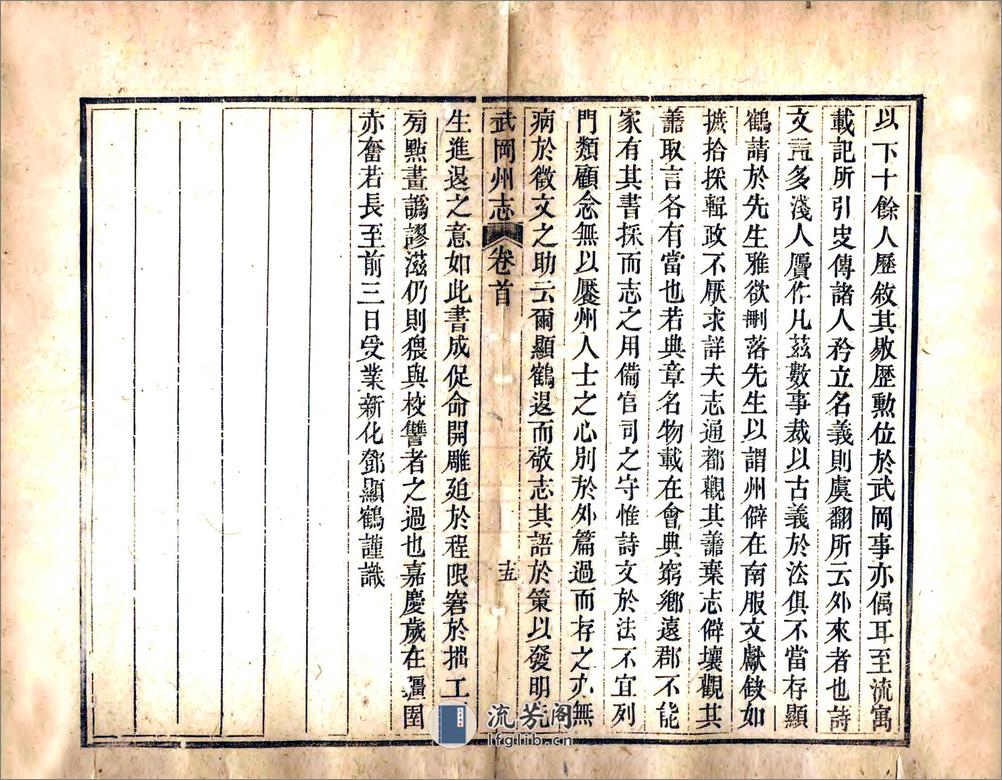 以下十餘人歷敘其敭歷勲位於武岡事亦偶耳至流寓
載記所引史傳諸人矜立名義則虞翻所云外來者也詩
文並多淺人贗作凡茲數事裁以古義於法俱不當存顯
鶴請於先生雅欲刪落先生以謂州僻在南服文獻鈌如
摭拾採輯政不厭求詳夫志通都觀其善棄志僻壤觀其
善取言各有當也若典章名物載在會典窮鄉遠郡不能
家有其書採而志之用備官司之守惟詩文於法不宜列
門類顧念無以饜州人士之心別於外篇過而存之亦無
病於徵文之助云爾顯鶴退而敬志其語於策以發明先
武岡州志 卷首 十五
生進退之意如此書成促命開雕廹於程限窘於拙工
㫄㸃畫譌謬滋仍則猥與校讐者之過也嘉慶歲在彊圉
赤奮若長至前三日受業新化鄧顯鶴謹識
流芳阁
lfglib.cn